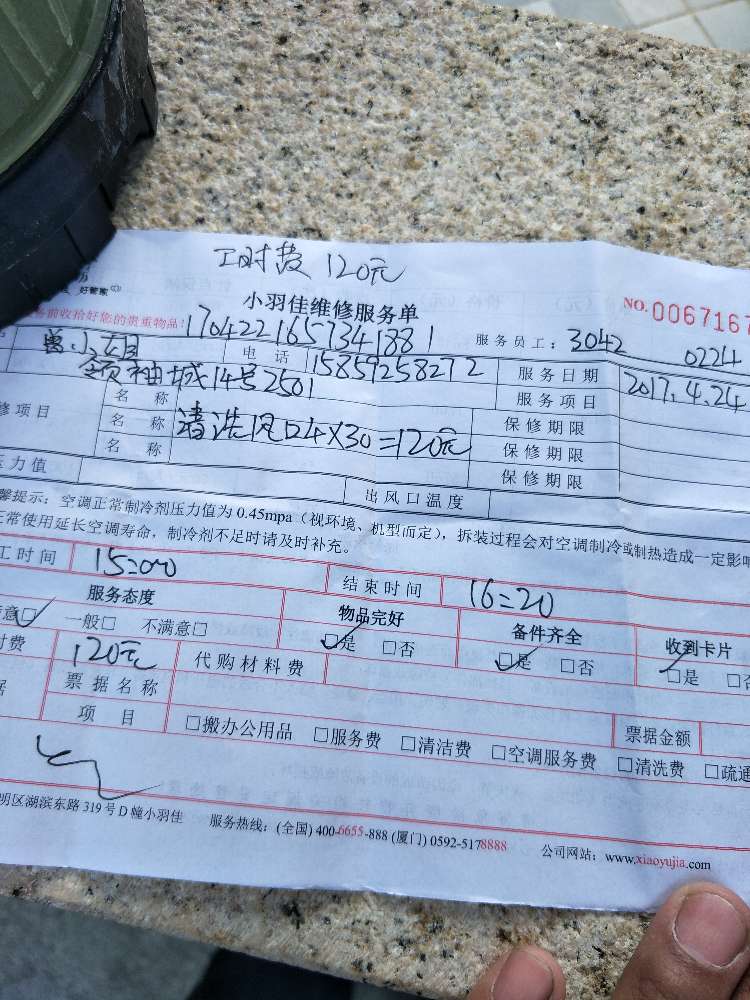 工时费 120元
好管家
小羽佳维修服务单
NO.0067167
务前收拾好您的贵重物品:
170422165734 1881
服务员工: 3042 0224
曾小姐 电话 15859258272 服务日期 2017.4.24
领袖城14号2501 服务项目
修项目 名称 保修期限
名称 清洗风口4×30=120元 保修期限
名称 保修期限
压力值 出风口温度
馨提示:空调正常制冷剂压力值为 0.45mpa(视环境、机型而定),拆装过程会对空调制冷或制热造成一定影响
正常使用延长空调寿命,制冷剂不足时请及时补充。
工时间 15:00 结束时间 16:20
服务态度 物品完好 备件齐全 收到卡片
意□ 一般□ 不满意□ □是 □否 □是 □否 □是 □否
时费 120元 代购材料费
据 票据名称 票据金额
项目 □搬办公用品 □服务费 □清洁费 □空调服务费 □清洗费 □疏通
明区湖滨东路 319 号 D 幢小羽佳 服务热线:(全国) 400-6655-888 (厦门) 0592-5178888 公司网站:www.xiaoyujia.com